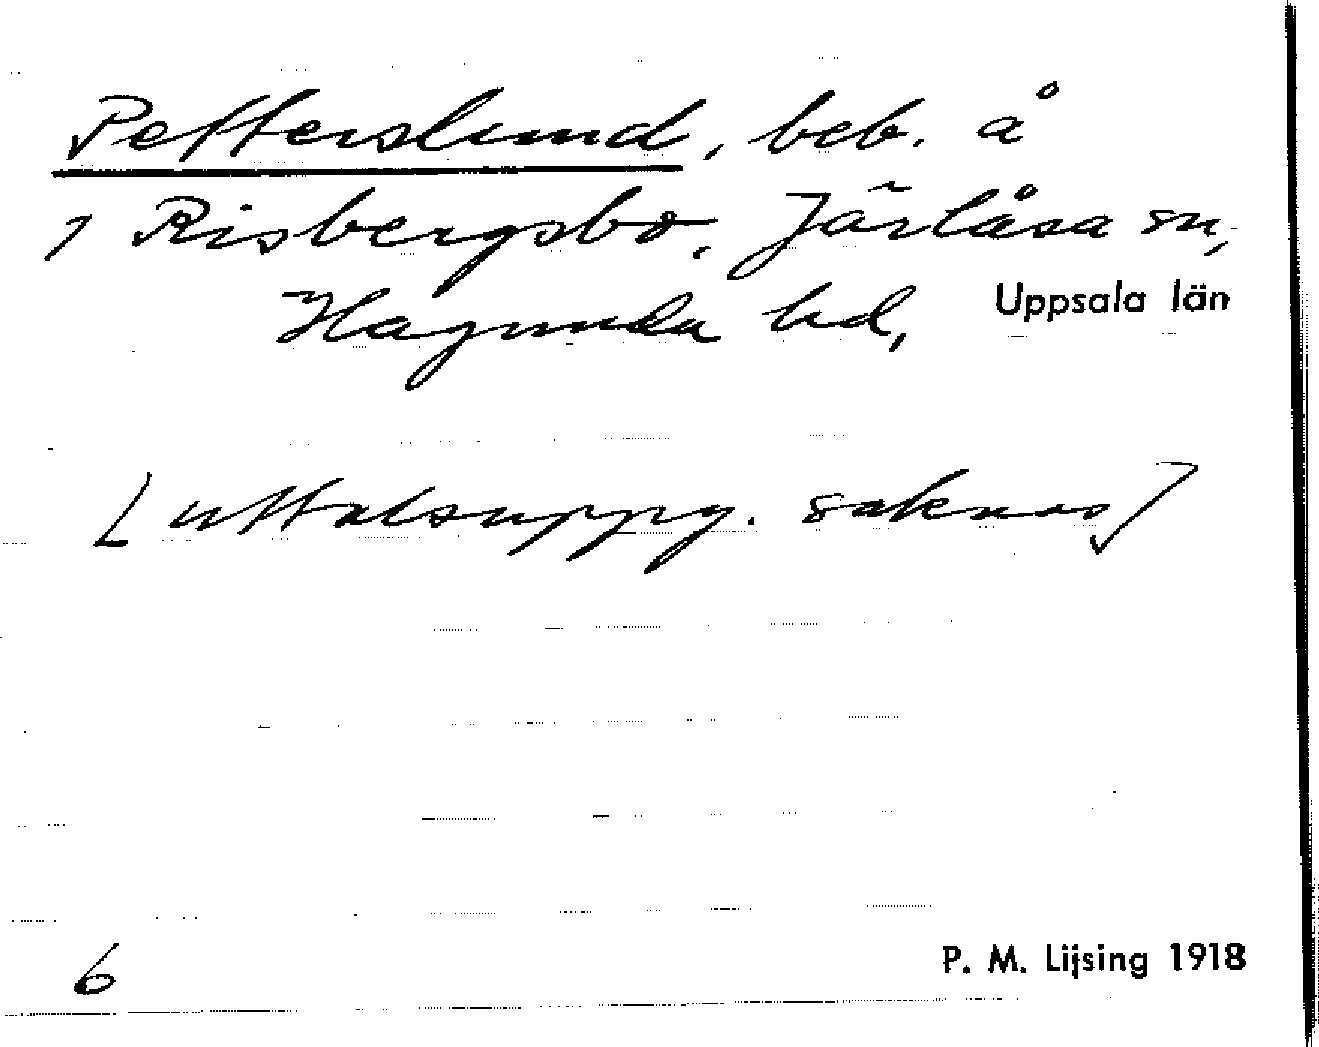 Petterslund, beb. å
1 Risbergsbo, Järlåsa sn,
Hagunda hd, Uppsala län
[uttalsuppg. saknas]
6
P. M. Lijsing 1918